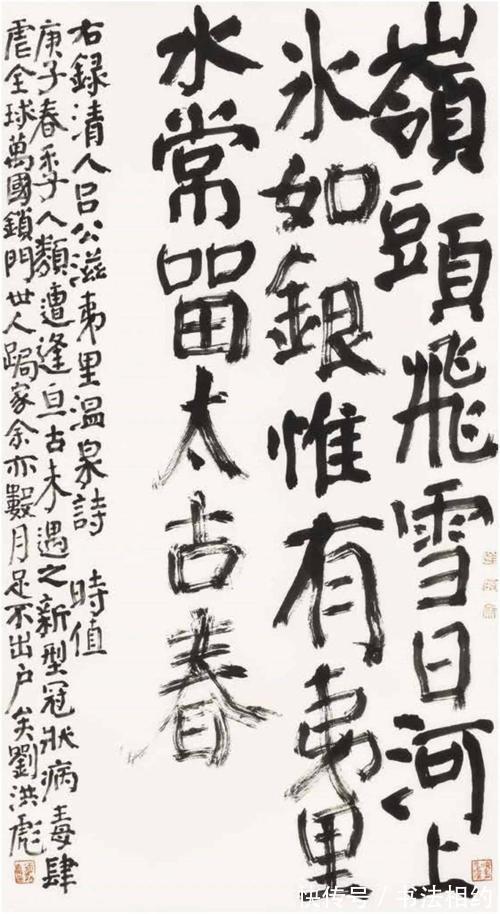 嶺頭飛雪日河上
氷如銀惟有夷里
水常留太古春
右録清人吕公滋夷里温泉詩 時值
庚子春季人類遭逢亘古未遇之新型冠狀病毒肆
虐全球萬國鎖門世人跼家余亦數月足不出户矣劉洪彪
快传号/书法相约